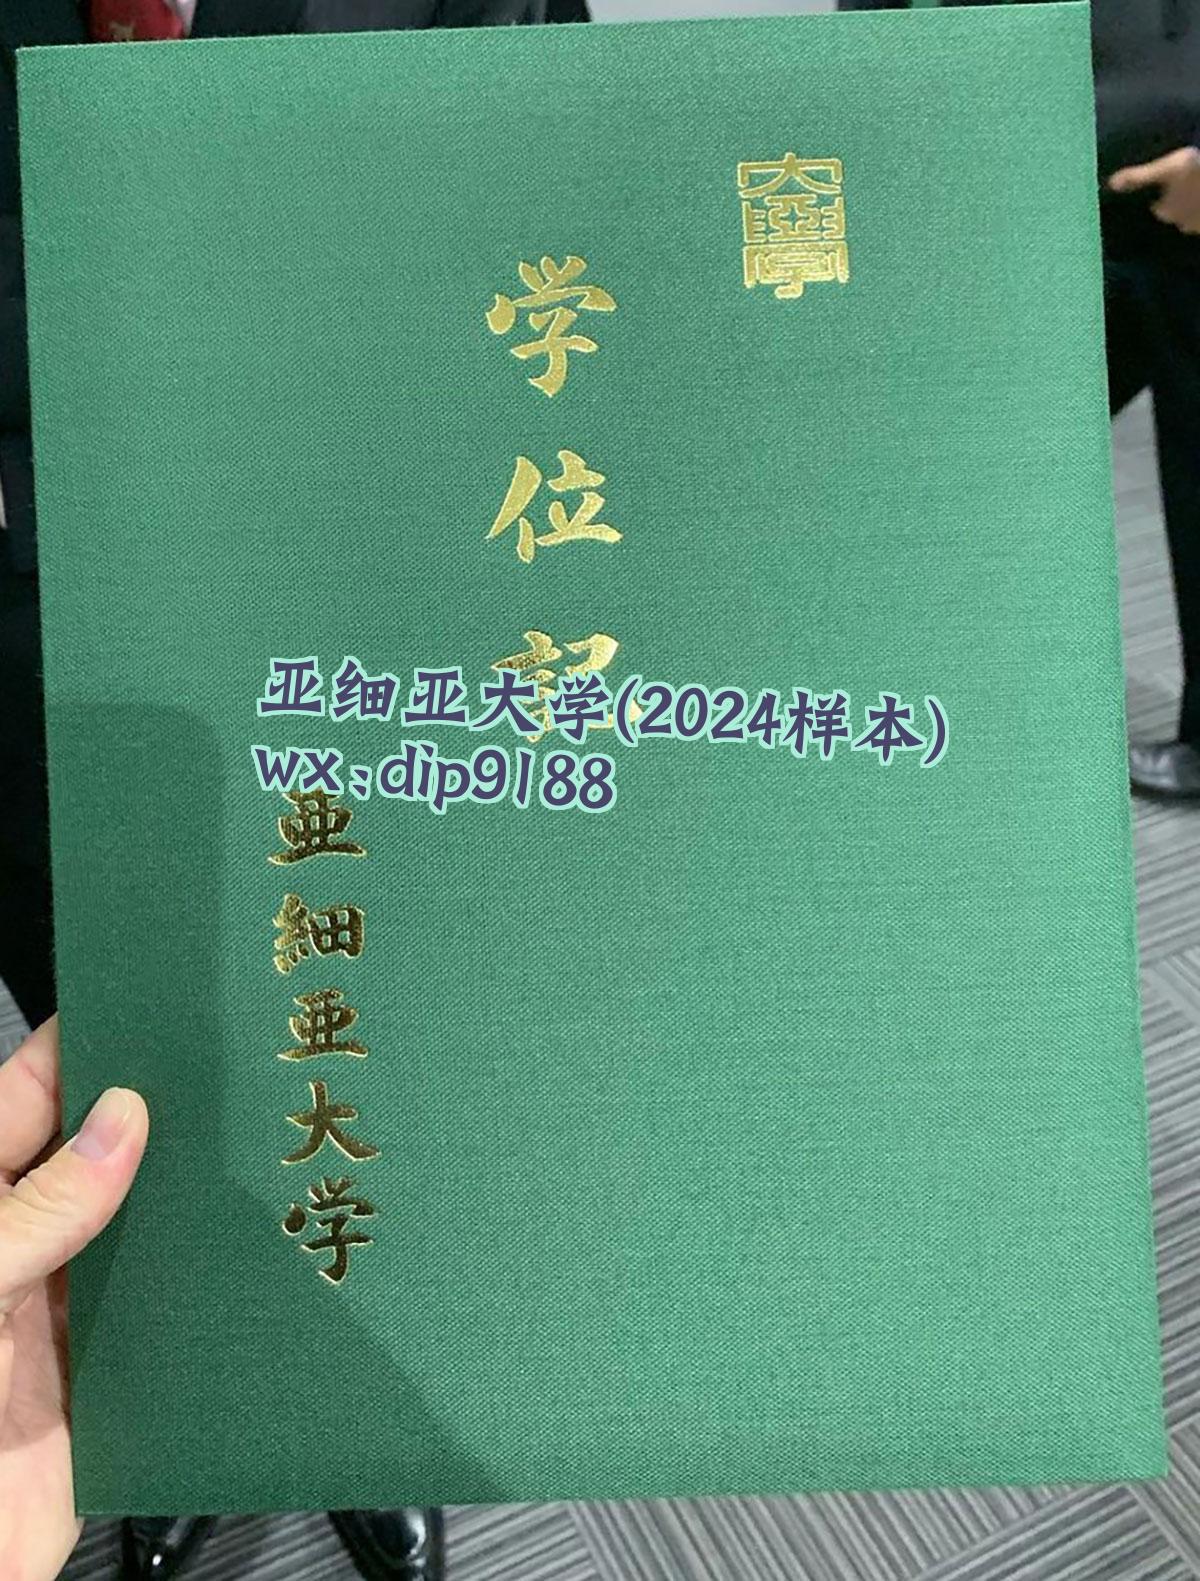 大亞学
学位記
亜細亜大学
亚细亚大学(2024样本)
wx:dip9188